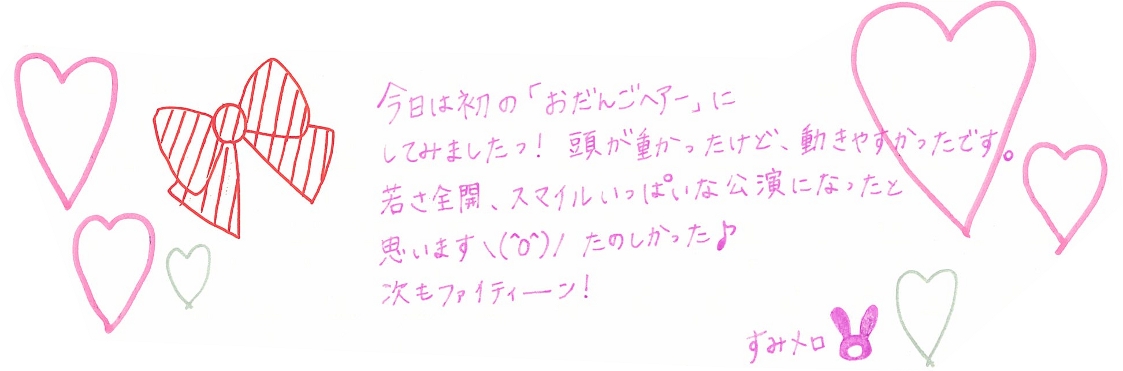 今日は初の「おだんごヘアー」に
してみましたっ! 頭が重かったけど、動きやすかったです。
若さ全開、スマイルいっぱいな公演になったと
思います\(^o^)/ たのしかった♪
次もファイティーン!
すみメロ